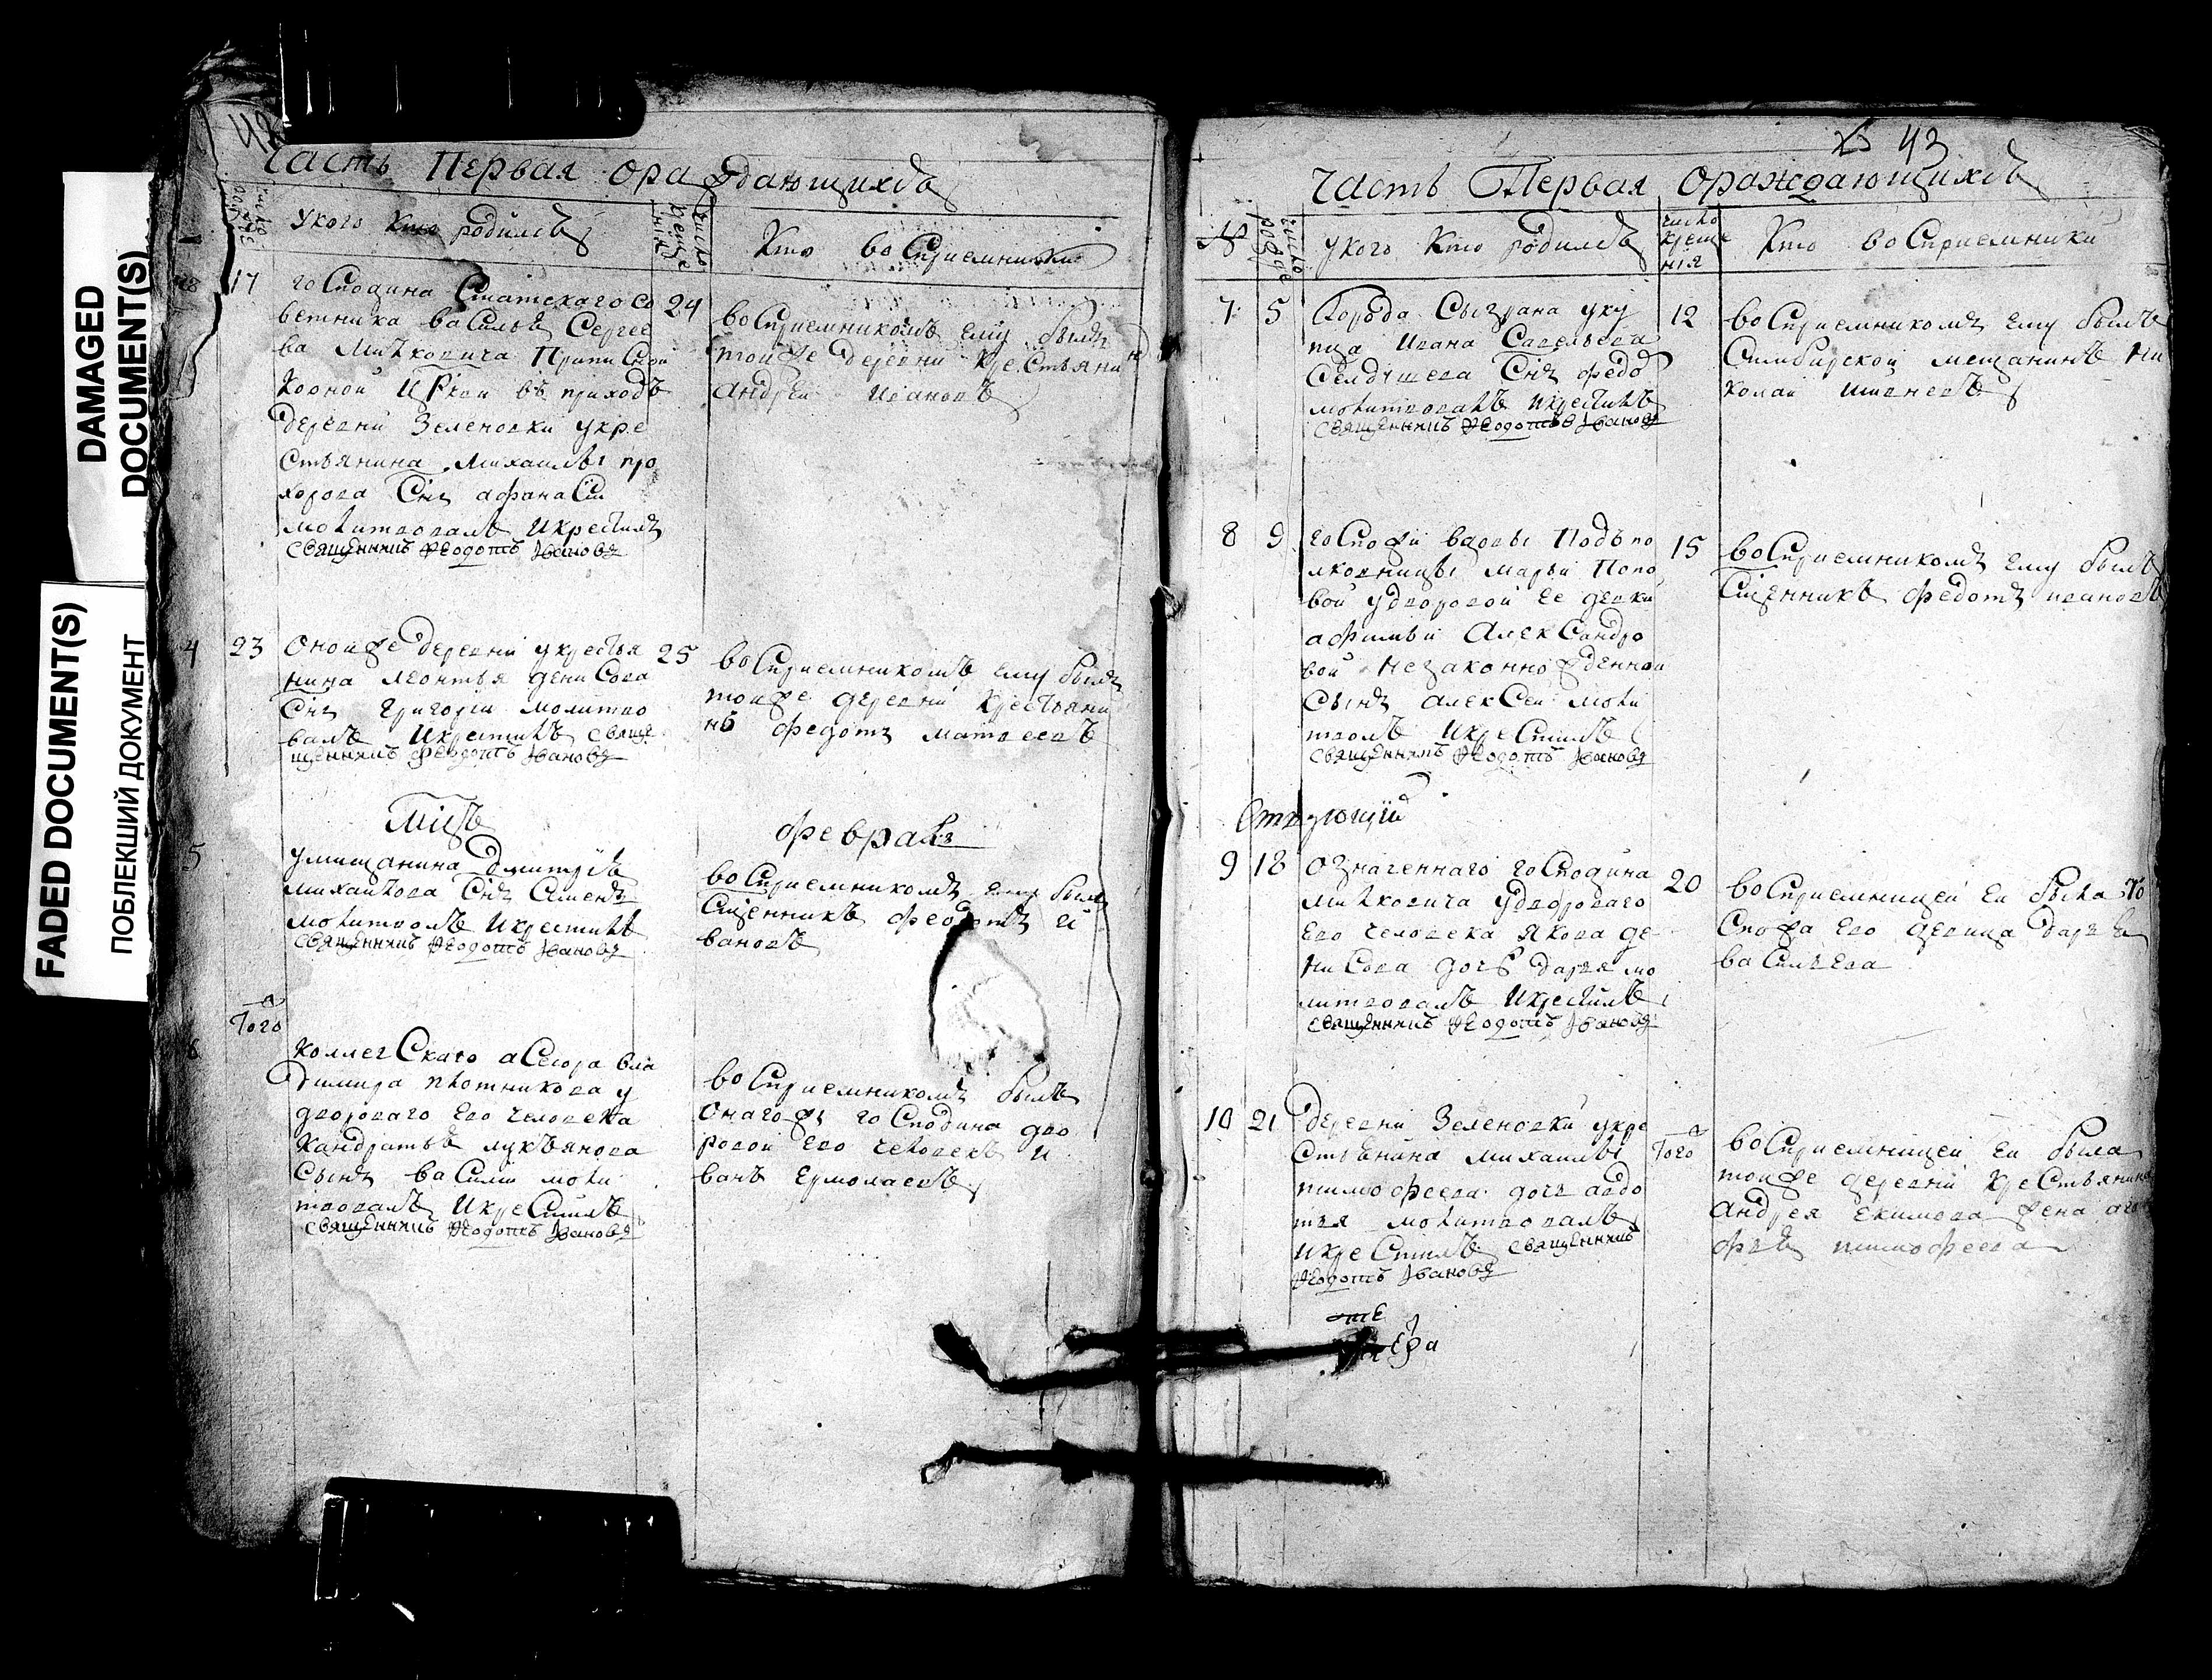 DAMAGED
DOCUMENT(S)
FADED DOCUMENT(S)
ПОБЛЕКШИЙ ДОКУМЕНТ
42
Часть Первая ораждающихсѧ
число рожде
укого Кто родилсѧ
число креще нія
Кто восприемники
17
господина Статскаго со
ветника василья Сергее
ва Милковича Приписной
к оной цркви въ приходъ
деревни Зеленовки укре
стьянина Михаилы про
хорова Снъ афанасіи
молитвовалъ и крестилъ
Священникъ Ѳеодотъ Ивановъ
24
восприемникомъ ему былъ
тойже деревни крестьянин
андрей Ивановъ
4
23
Онойже деревни укрестья
нина леонтья денисова
Снъ Григореи молитво
валъ и крестилъ свяще
щенникъ Ѳеодотъ Ивановъ
25
восприемникомъ ему былъ
тойже деревни крестьяни
нъ федотъ матвеевъ
Мцъ
февраль
5
умещанина Дмитрея
михаилова Снъ Семенъ
молитвовалъ и крестилъ
Священникъ Ѳеодотъ Ивановъ
восприемникомъ ему былъ
Сщенникъ федотъ и
вановъ
6
Того
коллегскаго асесора вла
димира плотникова у
дворового его человека
Кандратья лукьянова
Сынъ василей моли
твовалъ и крестилъ
Священникъ Ѳеодотъ Ивановъ
восприемникомъ былъ
Онагожъ господина дво
ровой его человекъ и
ванъ Ермолаевъ
43
Часть Первая ораждающихсѧ
№
число рожде
укого Кто родилсѧ
число креще нія
Кто восприемники
7
5
Города Сызрана уку
пца Ивана Савельева
Снъ федо
молитвовалъ и крестилъ
Священникъ Ѳеодотъ Ивановъ
12
восприемникомъ ему былъ
Симбирской мещанинъ ни
колай
8
9
госпожи вдовы Подъпо
лковницы марьи Попо
вой удворовой ее девки
афимьи Александро
вой незаконно жденной
Сынъ алексеи моли
твовлъ и крестилъ
Священникъ Ѳеодотъ Ивановъ
15
восприемникомъ ему былъ
Сщенникъ федотъ ивановъ
9
18
Означеннаго господина
милковича удвороваго
его человека якова де
нисова дочь дарья мо
литвовалъ и крестилъ
Священникъ Ѳеодотъ Ивановъ
20
восприемницей ей была го
спожа его девица дарья
васильева
10
21
Деревни Зеленовки укре
стьянина михаилы
тимофеева дочь авдо
тья молитвовалъ
и крестилъ священникъ
Ѳеодотъ Ивановъ
Того
восприемницей ей была
тойже деревни крестьянина
Андрея екимова жена ага
фья тимофеева